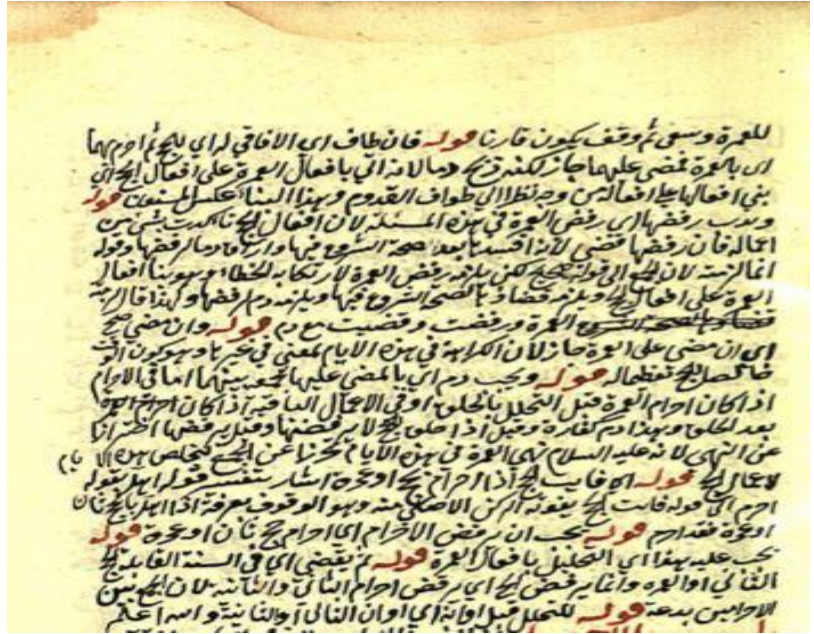 للعمرة وسعى ثم وقف يكون قارنا قوله فان طاف اى الافاقي له اى للحج ثم احرم بها
اى بالعمرة فمضى عليهما جاز لكنه ذبح دما لانه اتى بافعال العمرة على افعال الحج اي
بنى افعالها على افعاله من وجه نظرا الى طواف القدوم وبهذا البناء عكس المسنون قوله
وندب رفضها اى رفض العمرة في هذه المسئلة لان افعال الحج تأكدت بشئ من
اعماله فان رفضها قضى لانه افسدها بعد صحة الشروع فيها واراق دما لرفضها وقوله
انما لزمته لان الجمع الى قوله صحيح لكن يلزمه رفض العمرة لارتكابه الخطاء وهو بناء افعال
العمرة على افعال الحج ويلزمه قضاؤها لصحة الشروع فيها ويلزمه دم لرفضها وكهذا قال
العمرة ورفضت وقضيت مع دم قوله وان مضى صح
اى ان مضى على العمرة جاز لان الكراهة في هذه الايام لمعنى في غيرها وهو كون الوقت
للحج تعظيما له قوله ويجب دم اى بالمضى عليها لجمعه بينهما اما في الاحرام
اذا كان احرام العمرة قبل التحلل بالحلق او في الاعمال الباقية اذا كان احرام العمرة
بعد الحلق وهذا دم كفارة وقيل اذا حلق للحج لا يرفضها وقيل يرفضها احترازا
عن النهى لانه عليه السلام نهى العمرة في هذه الايام تحرزا عن الجمع
لاعمال الحج قوله اى فايت الحج اذا احرام بحج او عمرة اشار بتفسير قوله اهل بقوله
احرم اى قوله فايت الحج بفوته اركن الاصلى منه وهو الوقوف بعرفة اذا اهل بالحج ثان
او عمرة فقد احرم قوله يجب ان يرفض الاحرام اى احرام حج ثان او عمرة قوله
يجب عليه بهذا اى التحليل بافعال العمرة قوله ثم يقضى اى في السنة القابلة الحج
الثاني او العمرة وانما يرفض الحج اى يرفض احرام الثاني والثانية لان الجمع بين
الاحرامين بدعة قوله للتحلل قبل اوانه اى اوان الثاني او الثانية والله اعلم